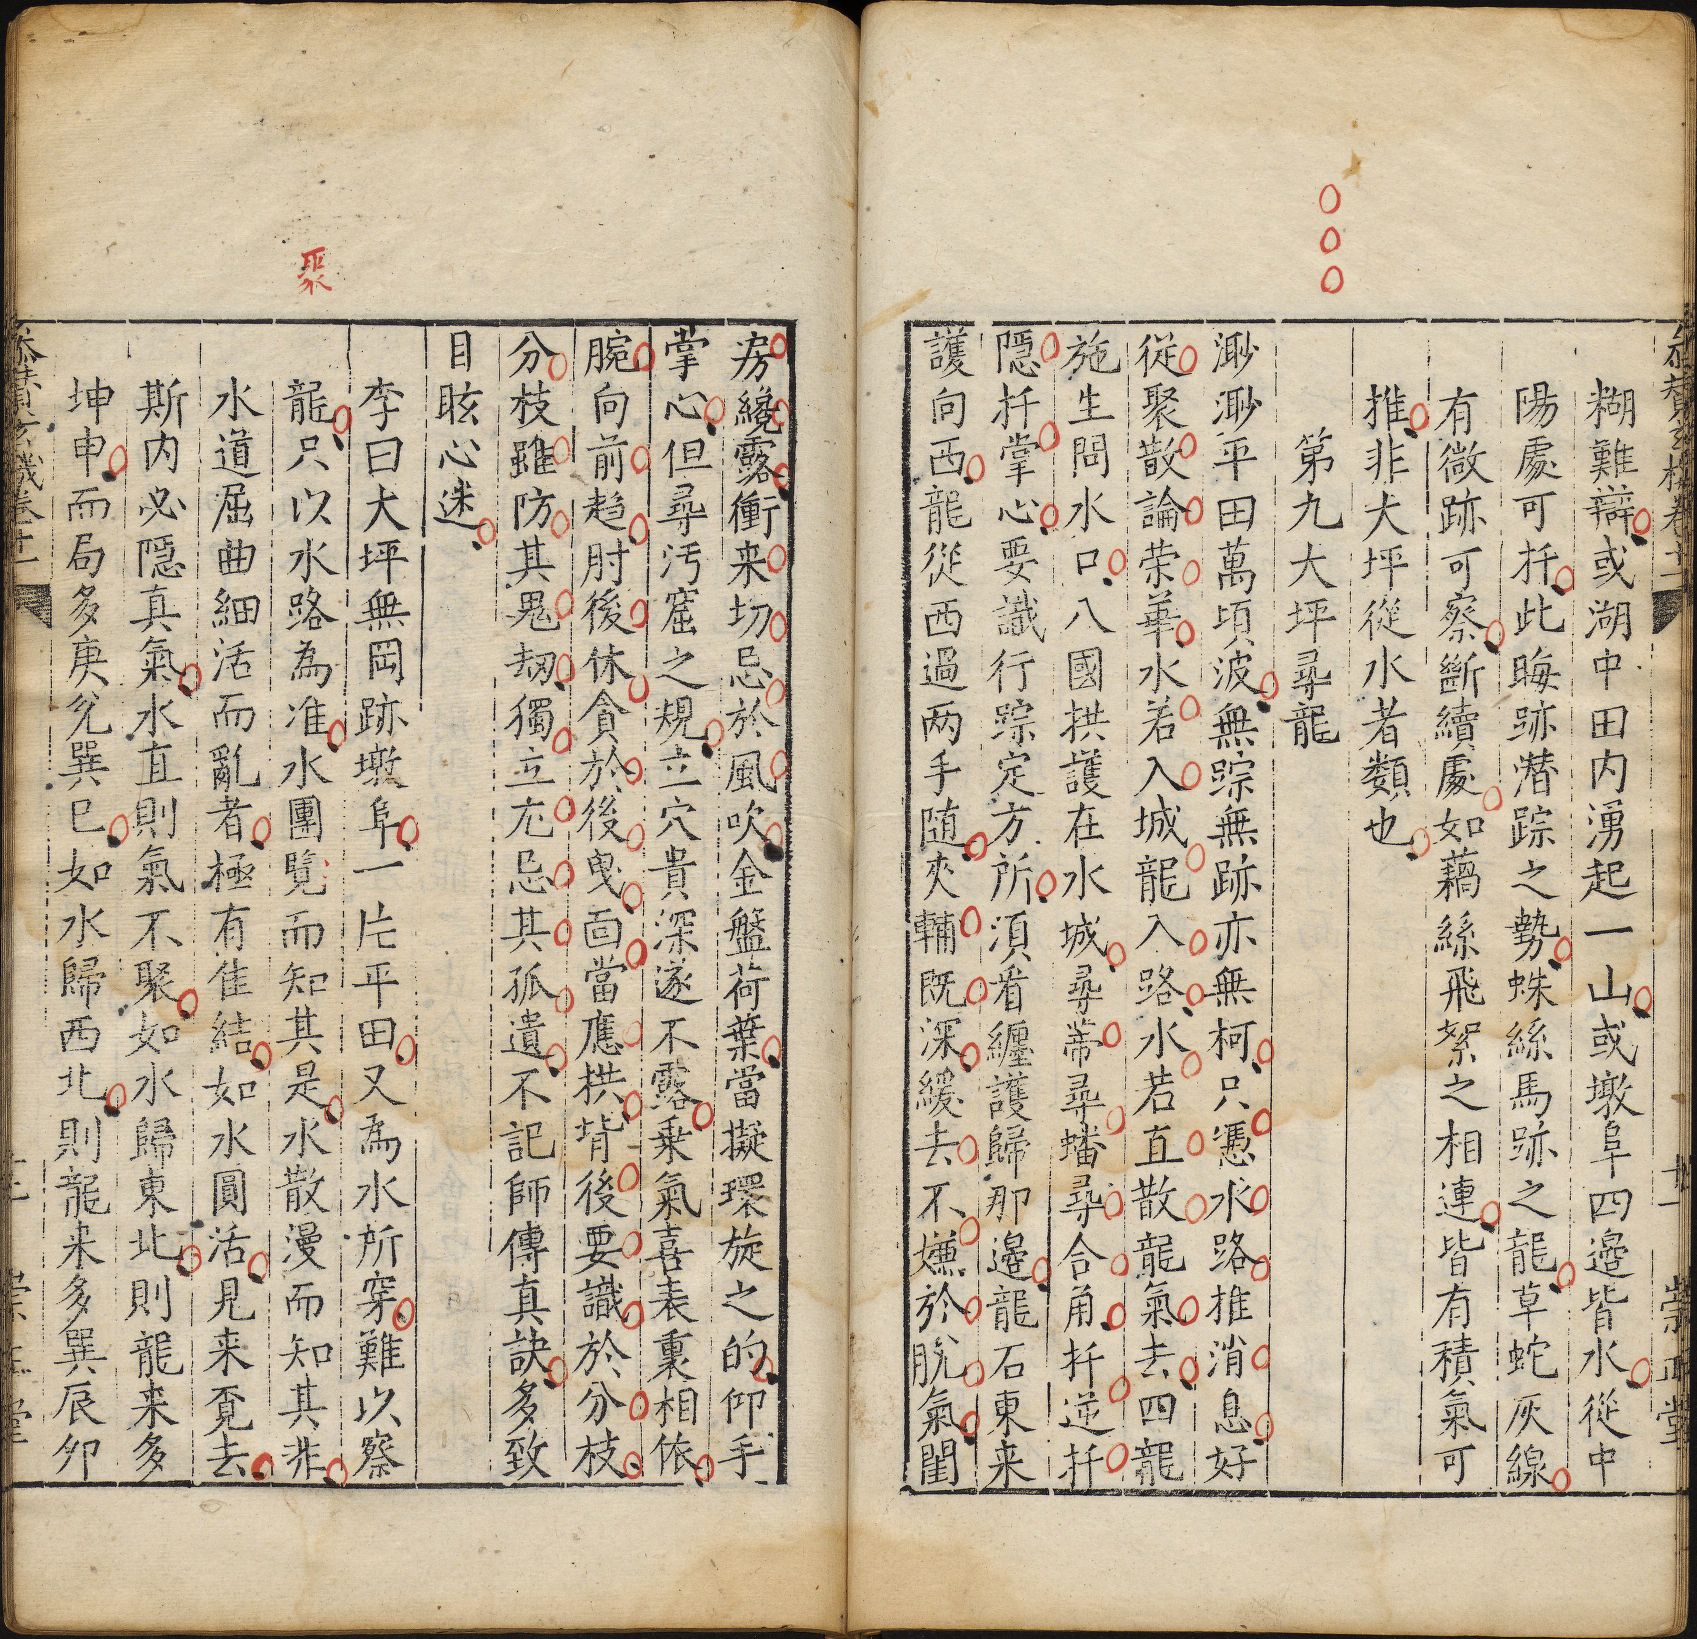 糊難辯或湖中田内湧起一山或墩阜四邉皆水從中
陽處可扦此晦跡潜踪之勢蛛絲馬跡之龍草蛇灰線
有微跡可察斷續處如藕絲飛絮之相連皆有積氣可
推非大坪從水者類也
第九大坪尋龍
渺渺平田萬頃波無踪無跡亦無柯只憑水路推消息好
從聚散論荣華水若入城龍入路水若直散龍氣去四龍
施生問水口八國拱護在水城尋蒂尋蟠尋合角扦逆扦
隱扦掌心要識行踪定方所須看纏護歸那邉龍石東来
護向西龍從西過两手随夾輔既深緩去不嫌於脱氣閨
房纔露衝来切忌於風吹金盤荷葉當擬環旋之的仰手
掌心但尋汚窟之規立穴貴深邃不露乗氣喜表裏相依
腕向前趋肘後休貪於後曳面當應栱背後要識於分枝
分枝雖防其鬼刼獨立尤忌其孤遺不記師傳真訣多致
目眩心迷
李曰大坪無岡跡墩阜一片平田又為水所穿難以察
龍只以水路為准水團覽而知其是水散漫而知其非
水道屈曲細活而亂者極有佳結如水圓活見来覔去
斯内必隱真氣水直則氣不聚如水歸東北則龍来多
坤申而局多庚兊巽巳如水歸西北則龍来多巽辰卯
聚